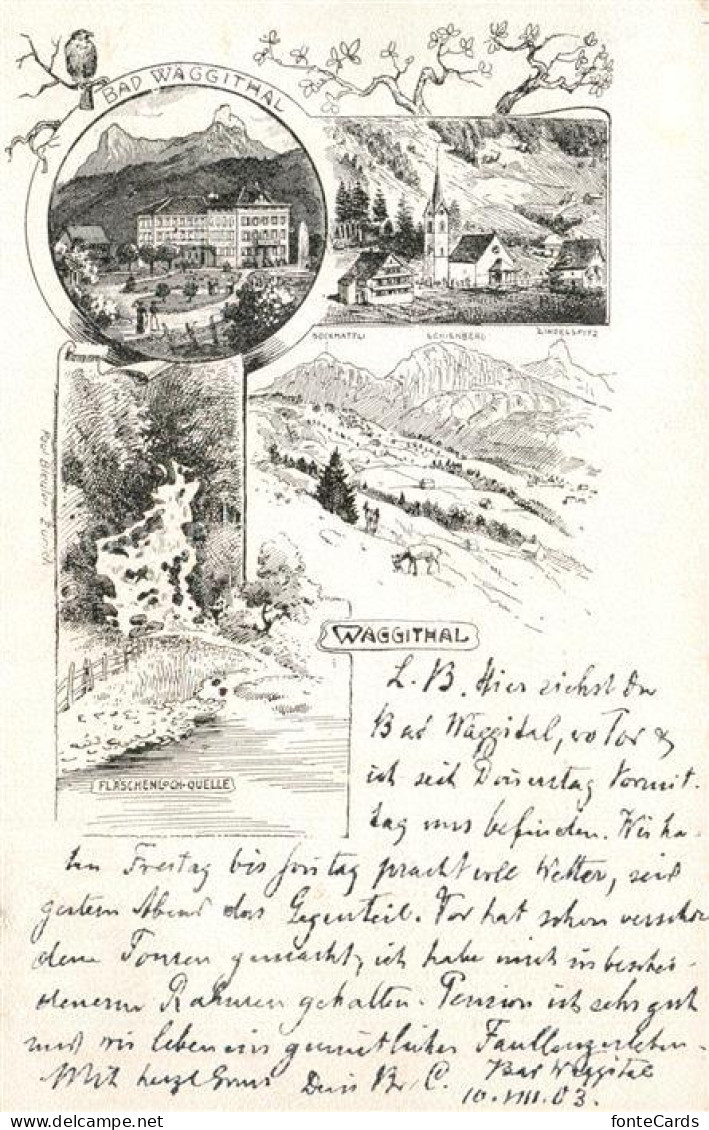 BAD WÄGGITHAL
BOCKMATTLI SCHIENBERG ZINDELSPITZ
WÄGGITHAL
FLÄSCHENLOCH-QUELLE
Zürich
L. B. Hier siehst Du
Bad Wäggital, wo &
ich seit Donnerstag Vormit-
tag uns befinden. Wir ha-
ten Freitag bis Sonntag prachtvolle Wetter, seit
gestern Abend das Gegenteil. hat schon verschie
dene Touren gemacht, ich habe mich in beschei-
denerem Rahmen gehalten. Pension ist sehr gut
und wir leben ein gemütliches Faullenzerleben.
Mit herzl Gruss Dein Br. C. Bad Wäggital
10. VIII. 03.
fonteCards